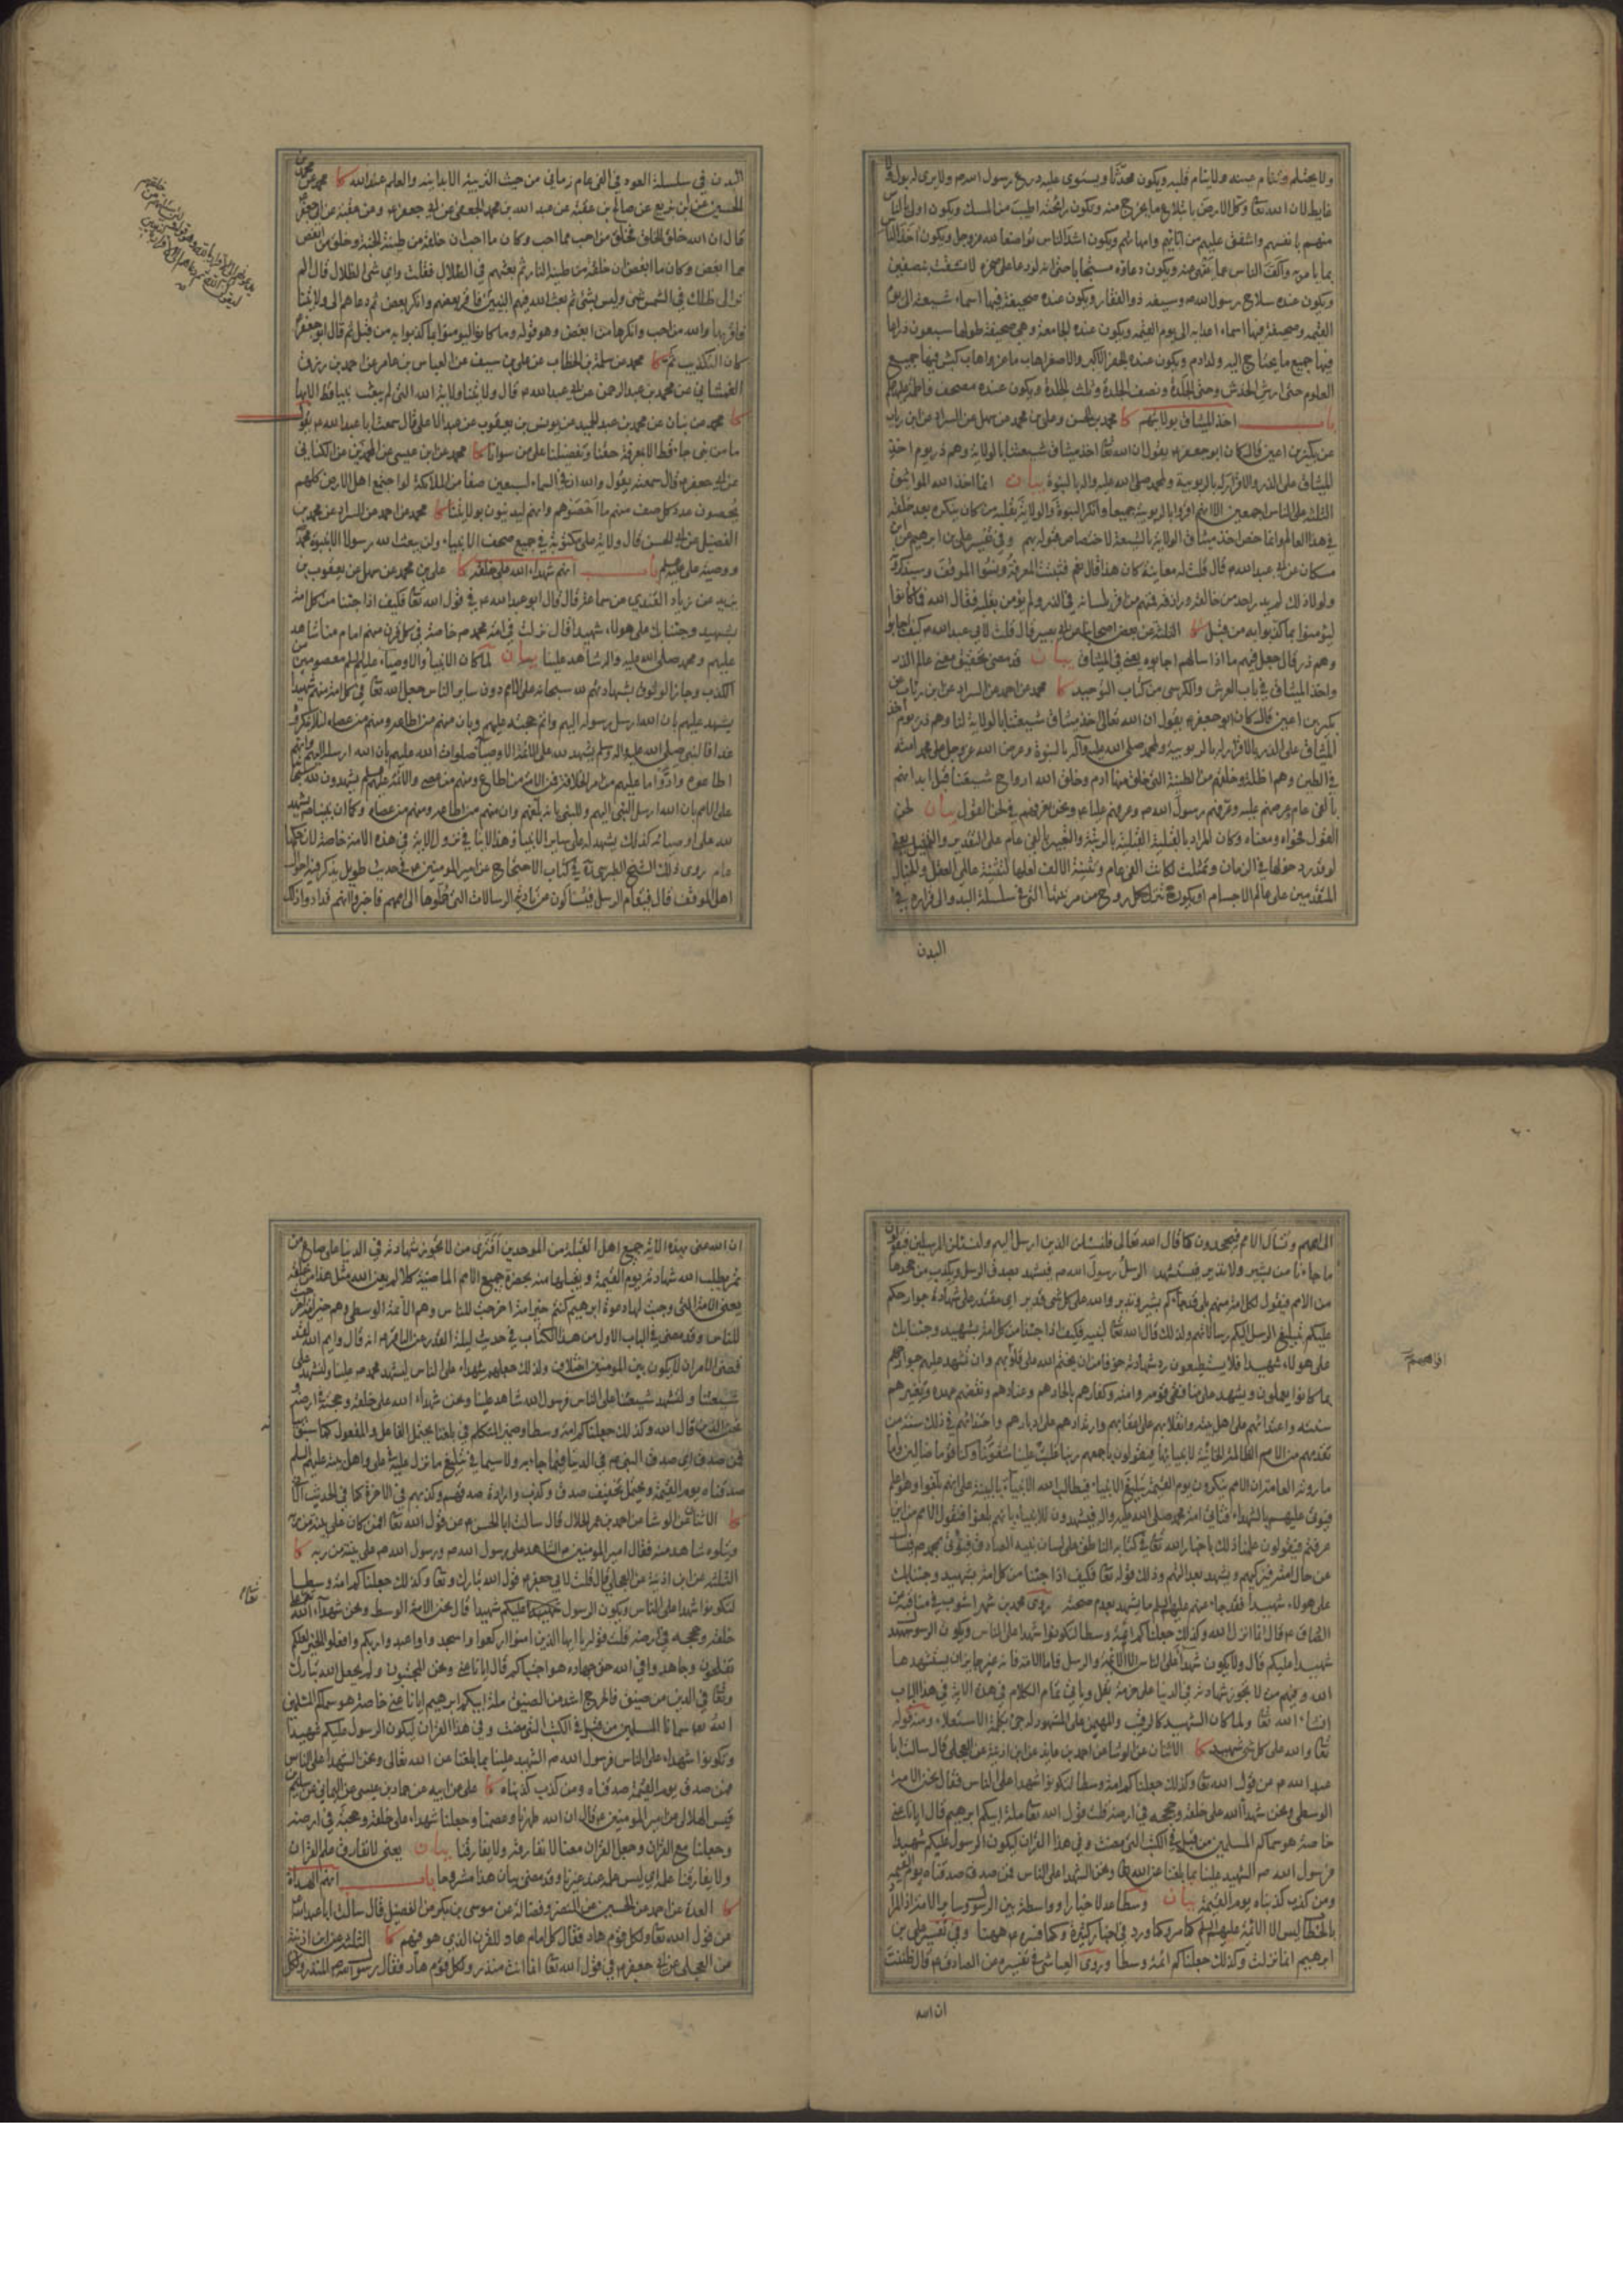 ولا يحتلم وتنام عينه ولا ينام قلبه ويكون محدثا ويستوي عليه درع رسول الله ص ولا يرى له بول ولا
غايط لان الله تعا وكل الارض بابتلاع ما يخرج منه وتكون رائحته اطيب من المسك ويكون اولى الناس
منهم بانفسهم واشفق عليهم من ابائهم وامهاتهم ويكون اشد الناس تواضعا لله عز وجل ويكون اخذ الناس
بما يامر به واكف الناس عما ينهى عنه ويكون دعاؤه مستجابا حتى انه لو دعا على صخرة لانشقت بنصفين
ويكون عنده سلاح رسول الله ص وسيفه ذو الفقار ويكون عنده صحيفة فيها اسماء شيعته الى يوم
القيمه وصحيفة فيها اسماء اعدايه الى يوم القيمه ويكون عنده الجامعة وهي صحيفة طولها سبعون ذراعا
فيها جميع ما يحتاج اليه ولد ادم ويكون عنده الجفر الاكبر والاصغر اهاب ماعز واهاب كبش فيها جميع
العلوم حتى ارش الخدش وحتى الجلدة ونصف الجلدة وثلث الجلدة ويكون عنده مصحف فاطمة عليها السلم
باب اخذ الميثاق بولايتهم كا محمد بن الحسن وعلي بن محمد عن سهل عن السراد عن ابن رياب
عن بكير بن اعين قال كان ابو جعفر ع يقول ان الله تعا اخذ ميثاق شيعتنا بالولاية وهم ذر يوم اخذ
الميثاق على الذر والاقرار له بالربوبية ولمحمد صلى الله عليه واله بالنبوة بيان انما اخذ الله المواثيق
الثلثة على الناس اجمعين الا انهم اقروا بالربوبية جميعا وانكر النبوة والولاية بقلبه من كان ينكره بعد خلقه
في هذا العالم وانما خص اخذ ميثاق الولاية بالشيعة لاختصاص قبوله بهم وفي تفسير علي بن ابرهيم عن ابن
مسكان عن ابي عبدالله ع قال قلت له معاينة كان هذا قال نعم فثبتت المعرفة ونسوا الموقف وسيذكرونه
ولولا ذلك لم يدر احد من خالقه ورازقه فمنهم من اقر بلسانه في الذر ولم يؤمن بقلبه فقال الله فما كانوا
ليؤمنوا بما كذبوا به من قبل كا الثلثة عن بعض اصحابنا عن ابي بصير قال قلت لابي عبد الله ع كيف اجابوا
وهم ذر قال جعل فيهم ما اذا سالهم اجابوه يعني في الميثاق بيان قد مضى تحقيق معنى عالم الذر
واخذ الميثاق في باب العرش والكرسي من كتاب التوحيد كا محمد عن احمد عن السراد عن ابن رئاب عن
بكير بن اعين قال كان ابو جعفر ع يقول ان الله تعالى اخذ ميثاق شيعتنا بالولاية لنا وهم ذر يوم اخذ
الميثاق على الذر بالاقرار له بالربوبية ولمحمد صلى الله عليه وآله بالنبوة وعرض الله عز وجل على محمد امته
في الطين وهم اظلة وخلقهم من الطينة التي خلق منها ادم وخلق الله ارواح شيعتنا قبل ابدانهم
بالفي عام وعرضهم عليه وعرفهم رسول الله ص وعرفهم عليا ع ونحن نعرفهم في لحن القول بيان لحن
القول فحواه ومعناه وكان المراد بالقبلية القبلية بالرتبة والتعبير بالفي عام على التقدير والتمثيل يعني
لو قدر دخولها في الزمان وتمثلت لكانت الفي عام وتثنية الالف لعلها لتثنية عالمي العقل والخيال
المتقدمين على عالم الاجسام او يكون ح تنزل كل روح من مرتبتها التي في سلسلة البدو الى قراره في
البدن
البدن في سلسلة العود في الفي عام زماني من حيث التربية الابدانية والعلم عند الله كا محمد عن محمد بن
الحسين عن ابن بزيع عن صالح بن عقبة عن عبد الله بن محمد الجعفي عن ابي جعفر ع وعن عقبة عن ابي جعفر ع
قال ان الله خلق الخلق فخلق من احب مما احب وكان ما احب ان خلقه من طينة الجنة وخلق من ابغض
مما ابغض وكان ما ابغض ان خلقه من طينة النار ثم بعثهم في الظلال فقلت واي شئ الظلال قال الم
تر الى ظلك في الشمس شئ وليس بشئ ثم بعث الله فيهم النبيين فاقر بعضهم وانكر بعض ثم دعاهم الى ولايتنا
فاقر بها والله من احب وانكرها من ابغض وهو قوله وما كانوا ليؤمنوا بما كذبوا به من قبل ثم قال ابو جعفر ع
كان التكذيب ثم كا محمد عن سلمة بن الخطاب عن علي بن سيف عن العباس بن عامر عن احمد بن رزق
الغمشاني عن محمد بن عبد الرحمن عن ابي عبد الله ع قال ولايتنا ولاية الله التي لم يبعث نبيا قط الا بها
كا محمد عن بنان عن محمد بن عبد الحميد عن يونس بن يعقوب عن عبد الاعلى قال سمعت ابا عبد الله ع يقول
ما من نبي جاء قط الا بمعرفة حقنا وتفضيلنا على من سوانا كا محمد عن ابن عيسى عن المحمدين عن الكناني
عن ابي جعفر ع قال سمعته يقول والله ان في السماء لسبعين صفا من الملائكة لو اجتمع اهل الارض كلهم
يحصون عدد كل صف منهم ما احصوهم وانهم ليدينون بولايتنا كا محمد عن احمد عن السراد عن محمد بن
الفضيل عن ابي الحسن ع قال ولاية علي مكتوبة في جميع صحف الانبياء ولن يبعث الله رسولا الا بنبوة محمد
ووصية علي ع باب انهم شهداء الله على خلقه كا علي بن محمد عن سهل عن يعقوب بن
يزيد عن زياد القندي عن سماعة قال قال ابو عبد الله ع في قول الله تعا فكيف اذا جئنا من كل امة
بشهيد وجئنا بك على هولاء شهيدا قال نزلت في امة محمد ص خاصة في كل قرن منهم امام منا شاهد
عليهم ومحمد صلى الله عليه واله شاهد علينا بيان لما كان الانبياء والاوصياء عليهم السلم معصومين من
الكذب وجاز الوثوق بشهادتهم لله سبحانه على الامم دون ساير الناس جعل الله تعا في كل امة منهم شهيدا
يشهد عليهم بان الله ارسل رسوله اليهم واتم حجته عليهم وبان منهم من اطاعه ومنهم من عصاه لئلا ينكروه
غدا فالنبي صلى الله عليه واله وسلم يشهد لله على الائمة الاوصياء صلوات الله عليهم بان الله ارسله اليهم وانهم
اطاعوه وادوا ما عليهم من امر الخلافة من الامة من اطاع ومنهم من عصى والائمة عليهم السلم يشهدون لله سبحانه
على الامم بان الله ارسل النبي اليهم وللنبي بانه بلغهم وان منهم من اطاعه ومنهم من عصاه وكما ان نبينا ص يشهد
لله على اوصيائه كذلك يشهد له على ساير الانبياء وهذا لا ينافي نزول الاية في هذه الامة خاصة لان حكمها
عام روى ذلك الشيخ الطبرسي ره في كتاب الاحتجاج عن امير المومنين ع في حديث طويل يذكر فيه احوال
اهل الموقف قال فيقام الرسل فيسالون عن تادية الرسالات التي حملوها الى اممهم فاخبروا انهم قد ادوا ذلك
الى اممهم وتسال الامم فيجحدون كما قال الله تعالى فلنسئلن الذين ارسل اليهم ولنسئلن المرسلين فيقولون
ما جاءنا من بشير ولا نذير فيستشهد الرسل رسول الله ص فيشهد بصدق الرسل ويكذب من جحدها
من الامم فيقول لكل امة منهم بلى قد جاءكم بشير ونذير والله على كل شئ قدير اي مقتدر على شهادة جوارحكم
عليكم بتبليغ الرسل اليكم رسالاتهم ولذلك قال الله تعا لنبيه فكيف اذا جئنا من كل امة بشهيد وجئنا بك
على هولاء شهيدا فلا يستطيعون رد شهادته خوفا من ان يختم الله على افواههم وان تشهد عليهم جوارحهم
بما كانوا يعملون ويشهد على منافقي قومه وامته وكفارهم بالحادهم وعنادهم ونقضهم عهده وتغييرهم
سنته واعتدائهم على اهل بيته وانقلابهم على اعقابهم وارتدادهم على ادبارهم واحتذائهم في ذلك سنة من
تقدمهم من الامم الظالمة الخائنة لانبيائها فيقولون باجمعهم ربنا غلبت علينا شقوتنا وكنا قوما ضالين واما
ما روته العامة ان الامم ينكرون يوم القيمة تبليغ الانبياء فيطالب الله الانبياء بالبينة على انهم بلغوا وهو اعلم
فيؤتى عليهم بالشهداء فتاتي امة محمد صلى الله عليه واله فيشهدون للانبياء بانهم بلغوا فتقول الامم من اين
عرفتم فيقولون علمنا ذلك باخبار الله تعا في كتابه الناطق على لسان نبيه الصادق فيؤتى بمحمد ص فيسال
عن حال امته فيزكيهم ويشهد بعدالتهم وذلك قوله تعا فكيف اذا جئنا من كل امة بشهيد وجئنا بك
على هولاء شهيدا فقد جاء عنهم عليهم السلم ما يشهد بعدم صحته روى محمد بن شهر اشوب في مناقبه عن
الصادق ع قال انما انزل الله وكذلك جعلناكم امة وسطا لتكونوا شهداء على الناس ويكون الرسول
شهيدا عليكم قال ولا يكون شهداء على الناس الا الائمة والرسل فاما الامة فانه غير جايز ان يستشهدها
الله وفيهم من لا تجوز شهادته في الدنيا على حزمة بقل وياتي تمام الكلام في هذه الاية في هذا الباب
انشاء الله تعا ولما كان الشهيد كالرقيب والمهيمن على المشهود له جئ بكلمة الاستعلاء ومنه قوله
تعا والله على كل شئ شهيد كا الاثنان عن الوشا عن احمد بن عايذ عن ابن اذينة عن العجلي قال سالت ابا
عبد الله ع عن قول الله تعا وكذلك جعلناكم امة وسطا لتكونوا شهداء على الناس فقال نحن الامة
الوسطى ونحن شهداء الله على خلقه وحججه في ارضه قلت قول الله تعا ملة ابيكم ابرهيم قال ايانا عنى
خاصة هو سماكم المسلمين من قبل في الكتب التي مضت وفي هذا القران ليكون الرسول عليكم شهيدا
فرسول الله ص الشهيد علينا بما بلغنا عن الله تعا ونحن الشهداء على الناس فمن صدق صدقناه يوم القيمه
ومن كذب كذبناه يوم القيمة بيان وسطا عدلا خيارا وواسطة بين الرسول وساير الامة اذ المراد
بالخطاب ليس الا الائمة عليهم السلم كما مر وكما ورد في اخبار كثيرة وكما فسره ع ههنا وفي تفسير علي بن
ابرهيم انما نزلت وكذلك جعلناكم ائمة وسطا وروى العياشي في تفسيره عن الصادق ع قال ظننت
ان الله
ان الله عنى بهذه الاية جميع اهل القبلة من الموحدين افترى من لا تجوز شهادته في الدنيا على صاع من
تمر يطلب الله شهادته يوم القيمة ويقبلها منه بحضرة جميع الامم الماضية كلا لم يعن الله مثل هذا من خلقه
يعني الامة التي وجبت لها دعوة ابرهيم كنتم خير امة اخرجت للناس وهم الامة الوسطى وهم خير امة اخرجت
للناس وقد مضى في الباب الاول من هذا الكتاب في حديث ليلة القدر عن الباقر ع انه قال وايم الله لقد
قضى الامر ان لا يكون بين المومنين اختلاف ولذلك جعلهم شهداء على الناس ليشهد محمد ص علينا ولنشهد على
شيعتنا ولتشهد شيعتنا على الناس فرسول الله شاهد علينا ونحن شهداء الله على خلقه وحجته في ارضه و
نحن الذين قال الله وكذلك جعلناكم امة وسطا وضمير المتكلم في بلغنا يحتمل الفاعل والمفعول كما سبق
فمن صدق اي صدق النبي ص في الدنيا فيما جاء به ولا سيما في تبليغ ما نزل عليه في علي واهل بيته عليهم السلم
صدقناه يوم القيمة ويحتمل تخفيف صدق وكذب وارادة صدقهم وكذبهم في الاخرة كما في الحديث الاتي
كا الاثنان عن الوشا عن احمد بن عمر الحلال قال سالت ابا الحسن ع عن قول الله تعا افمن كان على بينة من ربه
ويتلوه شاهد منه فقال امير المومنين ع الشاهد على رسول الله ص ورسول الله ص على بينة من ربه كا
الثلثه عن ابن اذينة عن العجلي قال قلت لابي جعفر ع قول الله تبارك وتعا وكذلك جعلناكم امة وسطا
لتكونوا شهداء على الناس ويكون الرسول عليكم شهيدا قال نحن الامة الوسط ونحن شهداء الله على
خلقه وحججه في ارضه قلت قوله يا ايها الذين امنوا اركعوا واسجدوا واعبدوا ربكم وافعلوا الخير لعلكم
تفلحون وجاهدوا في الله حق جهاده هو اجتباكم قال ايانا عنى ونحن المجتبون ولم يجعل الله تبارك
وتعا في الدين من ضيق فالحرج اشد من الضيق ملة ابيكم ابرهيم ايانا عنى خاصة هو سماكم المسلمين
الله سمانا المسلمين من قبل في الكتب التي مضت وفي هذا القران ليكون الرسول عليكم شهيدا
وتكونوا شهداء على الناس فرسول الله ص الشهيد علينا بما بلغنا عن الله تعالى ونحن الشهداء على الناس
فمن صدق يوم القيمة صدقناه ومن كذب كذبناه كا علي عن ابيه عن حماد بن عيسى عن اليماني عن سليم بن
قيس الهلالي عن امير المومنين ع قال ان الله طهرنا وعصمنا وجعلنا شهداء على خلقه وحجته في ارضه
وجعلنا مع القران وجعل القران معنا لا نفارقه ولا يفارقنا بيان يعني لا نفارق علم القران
ولا يفارقنا علمه اي ليس علمه عند غيرنا وقد مضى بيان هذا مشروحا باب انهم الهداة
كا العدة عن احمد عن الحسين عن النضر وفضالة عن موسى بن بكر عن الفضيل قال سالت ابا عبد الله ع
عن قول الله تعا ولكل قوم هاد فقال كل امام هاد للقرن الذي هو فيهم كا الثلثة عن ابن اذينة
عن العجلي عن ابي جعفر ع في قول الله تعا انما انت منذر ولكل قوم هاد فقال رسول الله ص المنذر ولكل